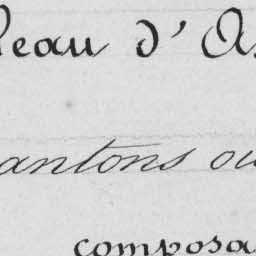 leau d'As
antons ou
composa